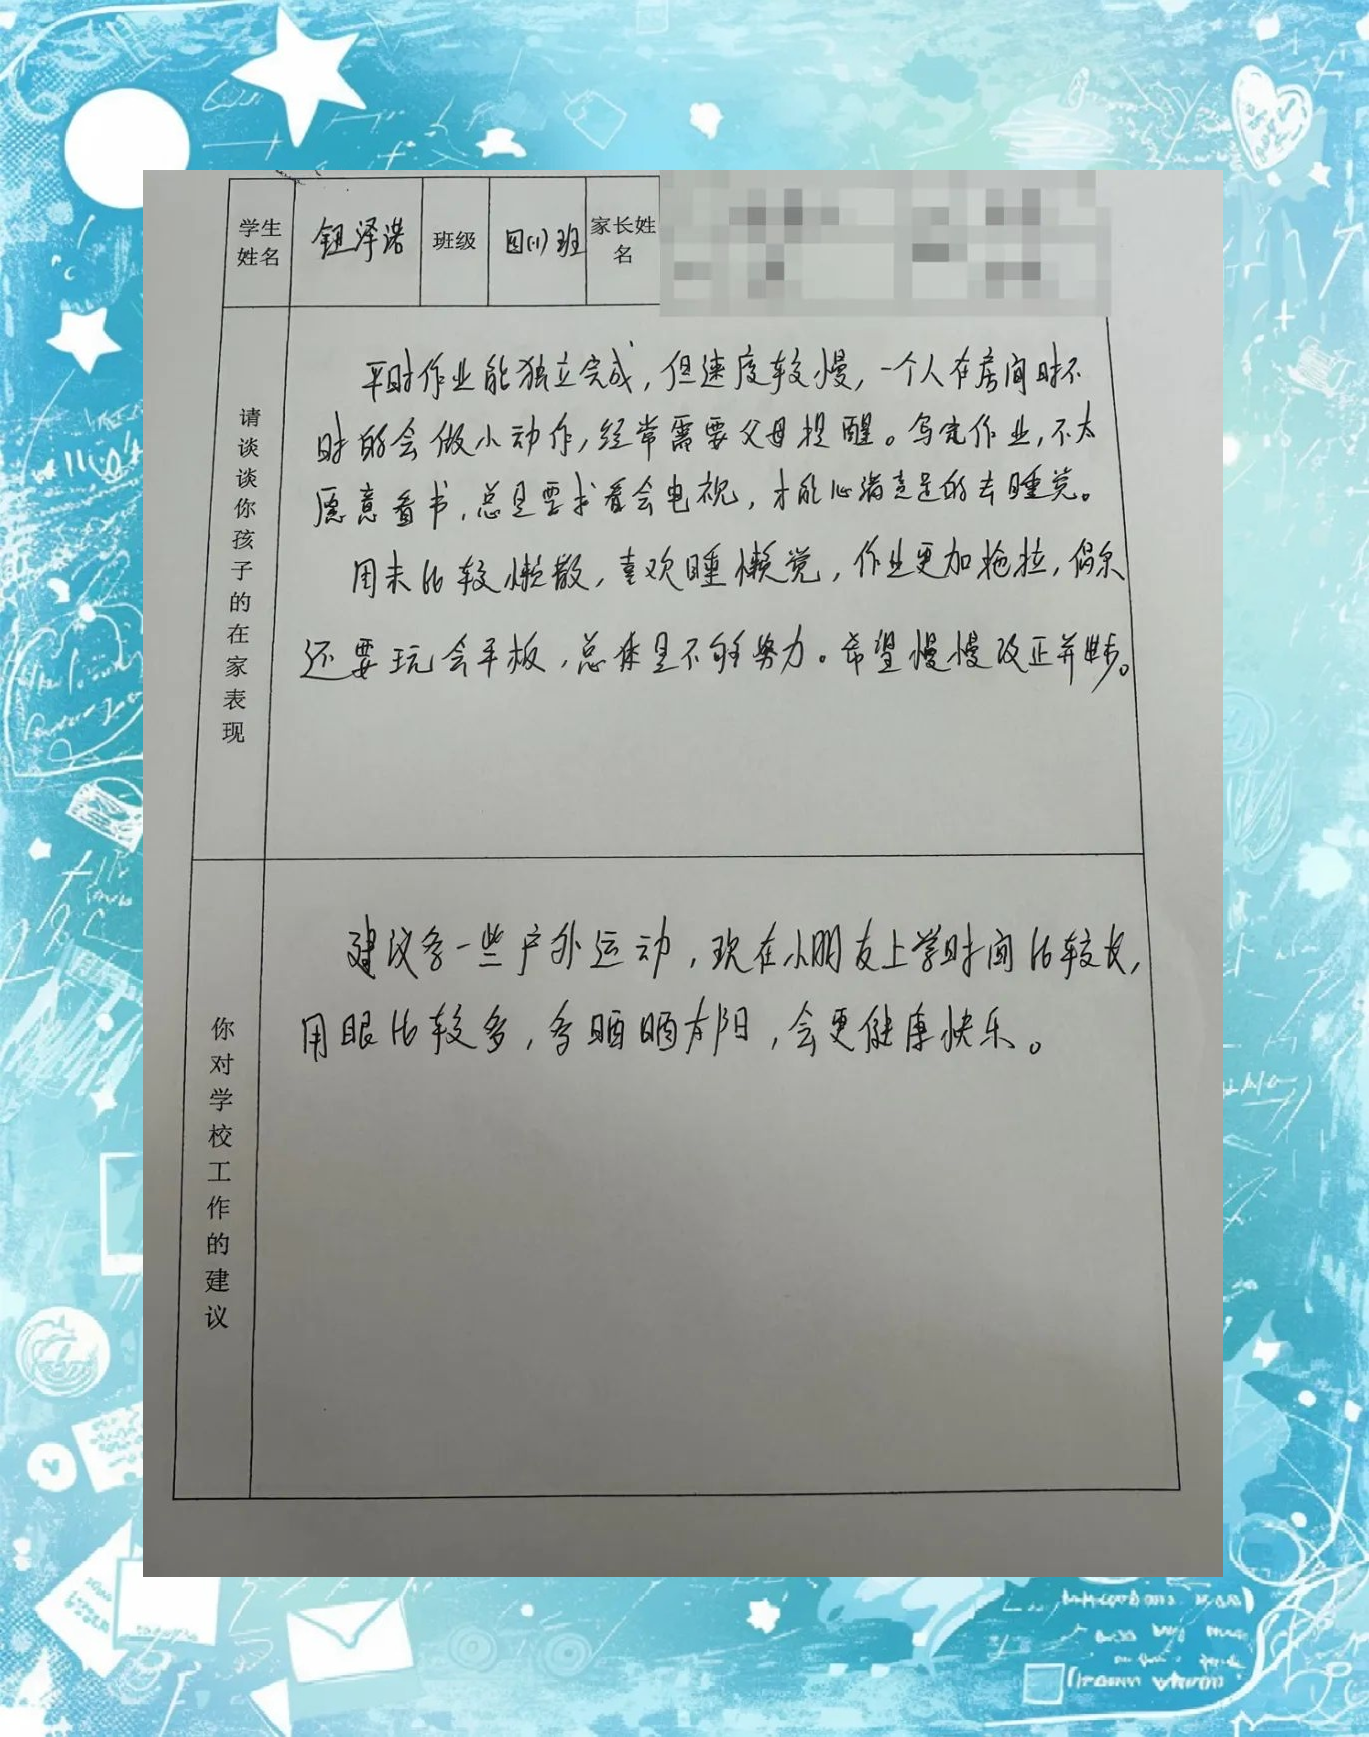 学生姓名 钮泽浩 班级 四(1)班 家长姓名
请谈谈你孩子的在家表现
平时作业能独立完成，但速度较慢，一个人在房间时不
时的会做小动作，经常需要父母提醒。写完作业，不太
愿意看书，总是要求看会电视，才能心满意足的去睡觉。
周末比较懒散，喜欢睡懒觉，作业更加拖拉，偶尔
还要玩会平板，总体是不够努力。希望慢慢改正并进步。
你对学校工作的建议
建议多一些户外运动，现在小朋友上学时间比较长，
用眼比较多，多晒晒太阳，会更健康快乐。